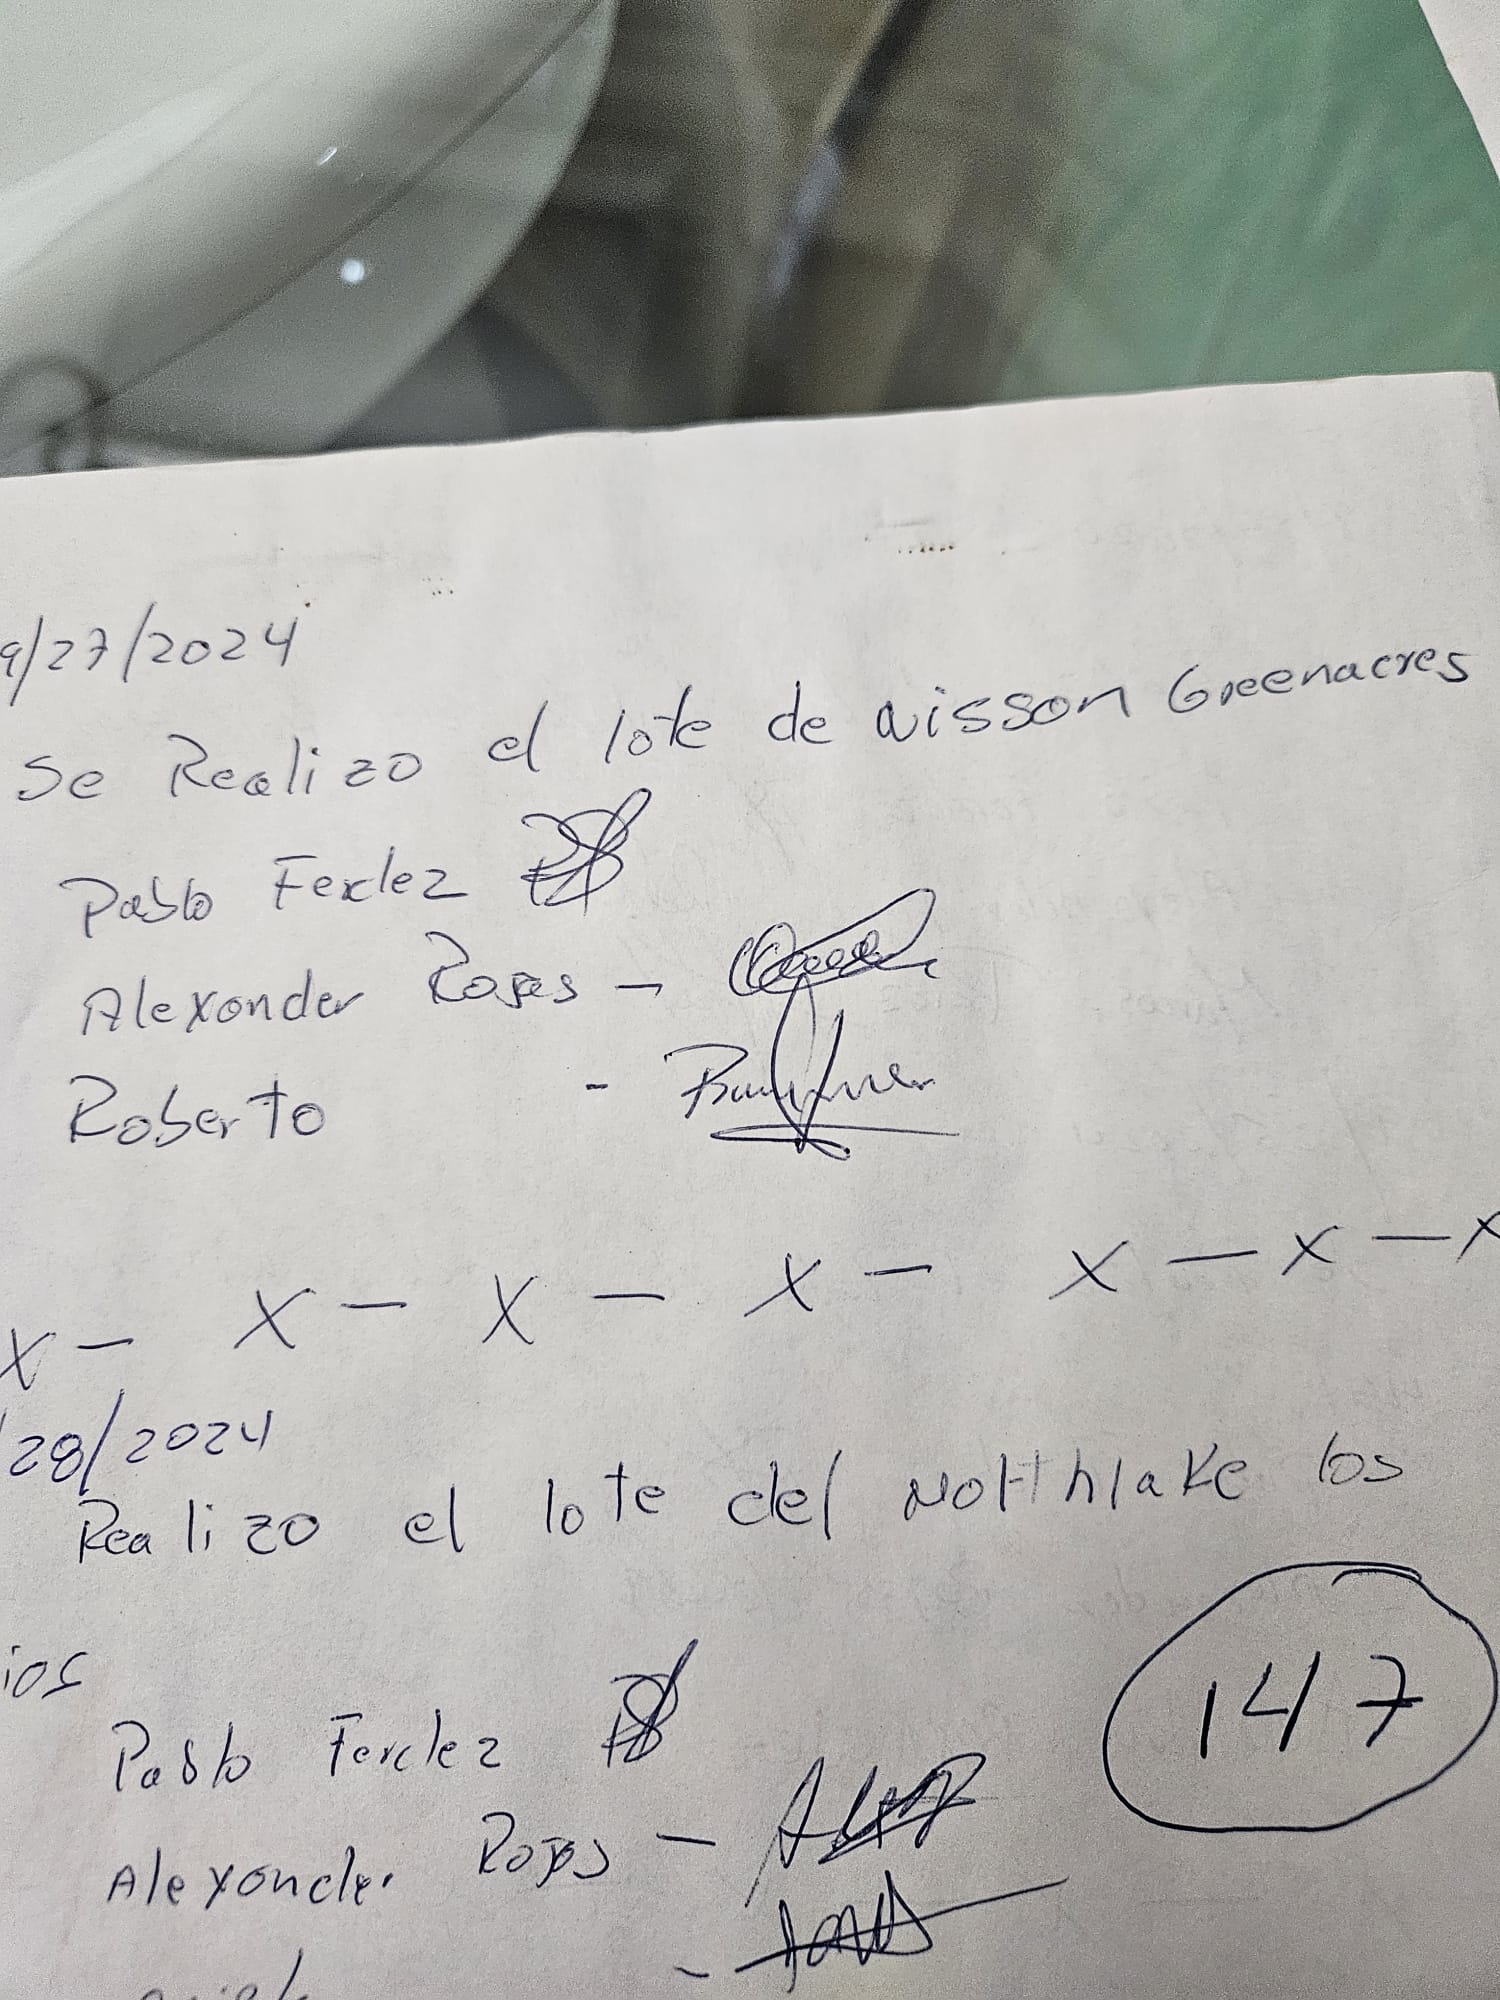 9/27/2024
Se Realizo el lote de Nisson Greenacres
Pablo Ferdez
Alexonder Rojas -
Roberto -
X - X - X - X - X - X - X
/28/2024
Realizo el lote del Northlake los
ios
147
Pablo Ferdez
Alexonder Rojas -
-